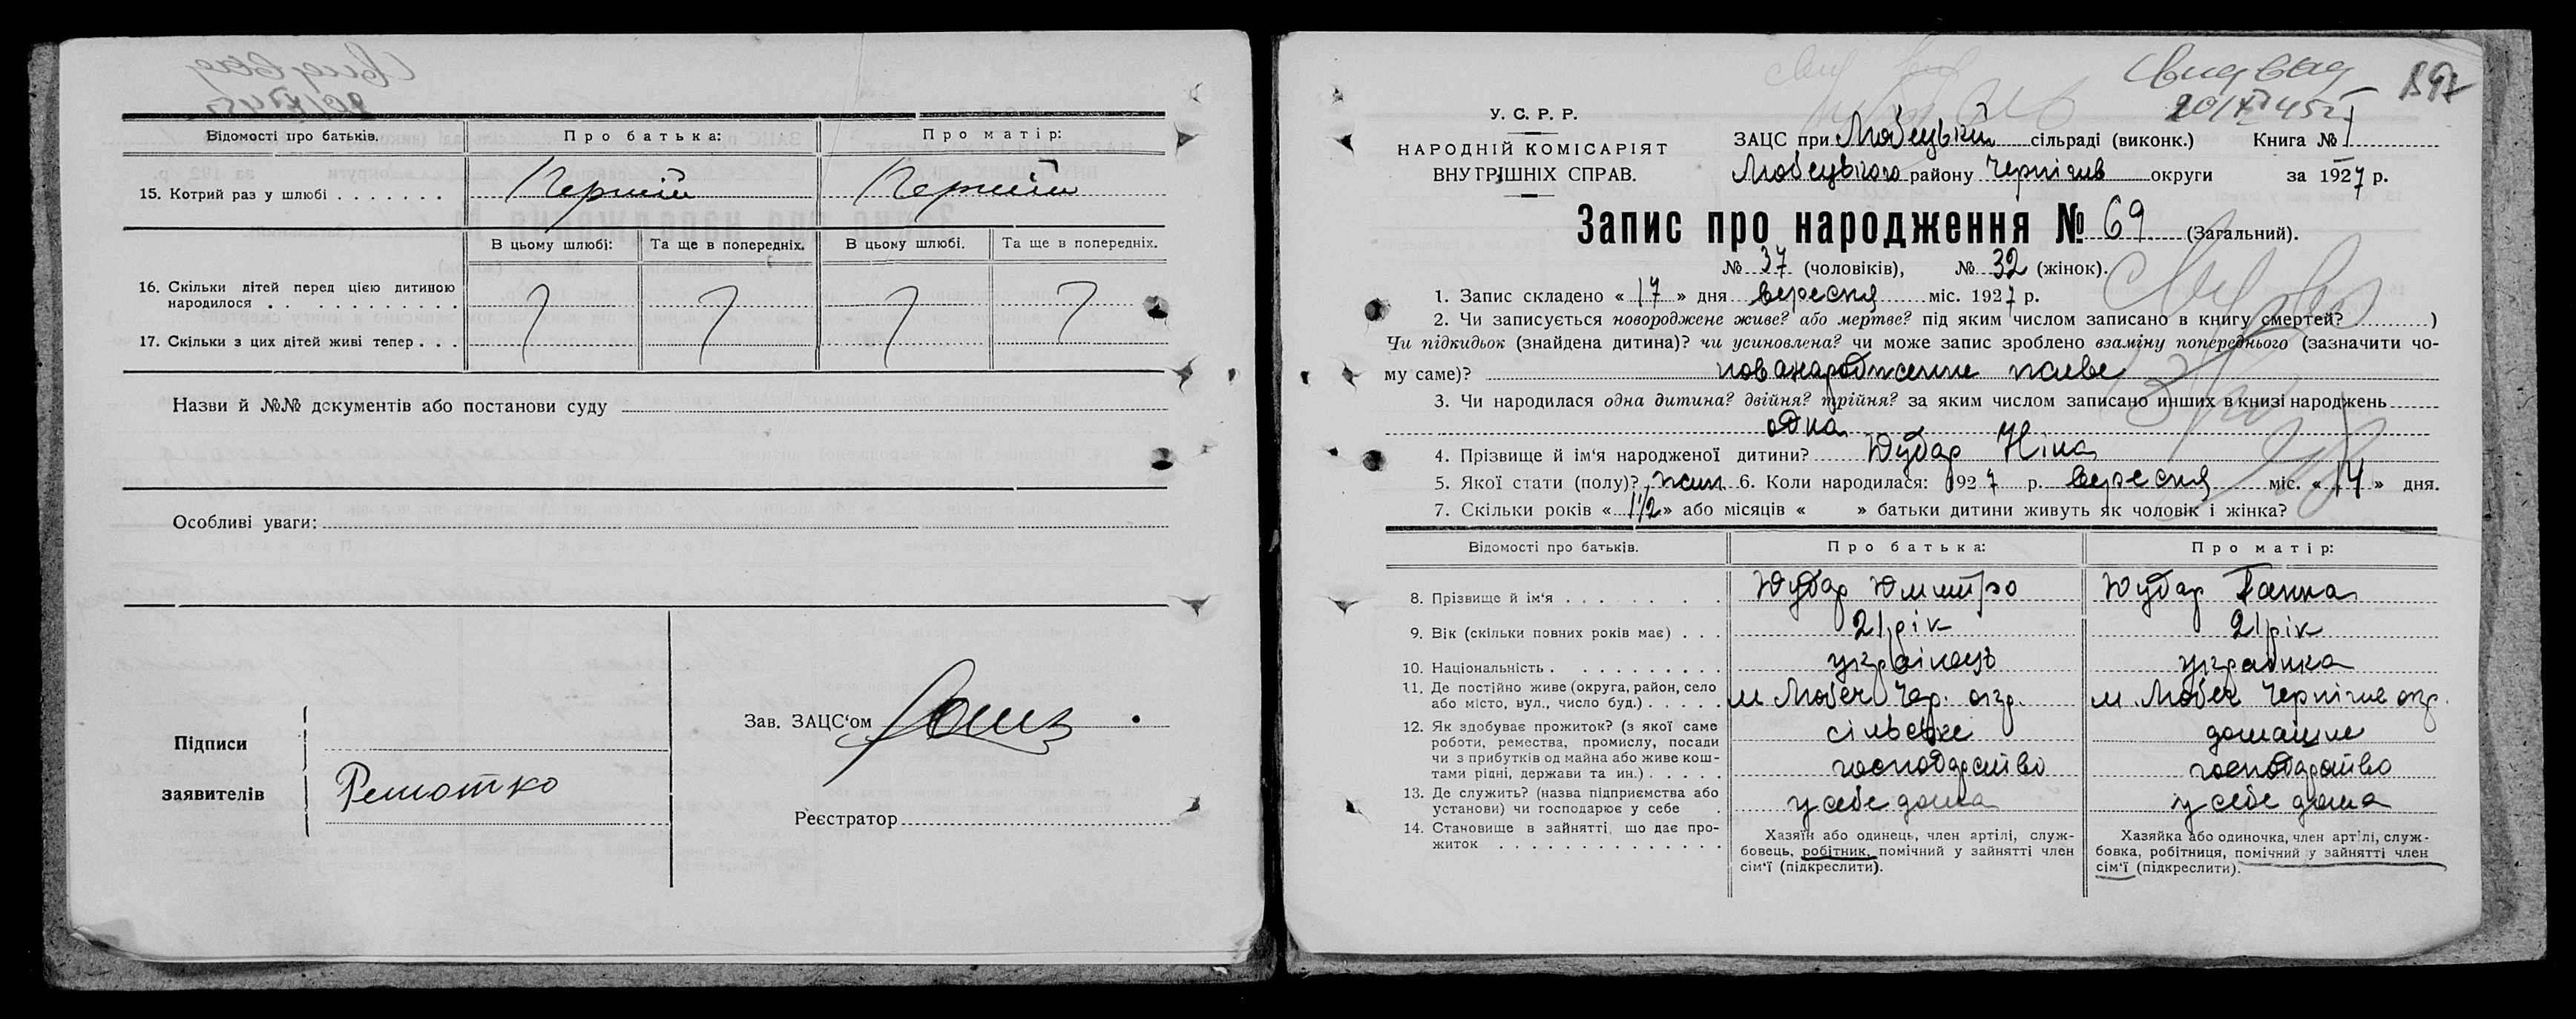 Відомості про батьків. Про батька: Про матір:
15. Котрий раз у шлюбі . . . . . . . Перший Перший
В цьому шлюбі: Та ще в попередніх. В цьому шлюбі. Та ще в попередніх.
16. Скільки дітей перед цією дитиною
народилося . . . . . . . . . . . .
17. Скільки з цих дітей живі тепер . . .
Назви й №№ документів або постанови суду
Особливі уваги:
Підписи
заявителів
Ремотко
Зав. ЗАЦС‘ом
Реєстратор
20/XI 45г
У. С. Р. Р.
НАРОДНІЙ КОМІСАРІЯТ
ВНУТРІШНІХ СПРАВ.
ЗАЦС при Любецький сільраді (виконк.) Книга № 1
Любецького району Чернігів округи за 1927 р.
Запис про народження № 69 (Загальний).
№ 37 (чоловіків), № 32 (жінок).
1. Запис складено « 17 » дня вересня міс. 1927 р.
2. Чи записується новороджене живе? або мертве? під яким числом записано в книгу смертей? )
Чи підкидьок (знайдена дитина)? чи усиновлена? чи може запис зроблено взаміну попереднього (зазначити чо-
му саме)? новонароджене живе
3. Чи народилася одна дитина? двійня? трійня? за яким числом записано инших в книзі народжень
одна
4. Прізвище й ім‘я народженої дитини? Дубар Ніна
5. Якої стати (полу)? жін 6. Коли народилася: 1927 р. вересня міс. « 14 » дня.
7. Скільки років « 1 1/2 » або місяців « » батьки дитини живуть як чоловік і жінка?
Відомості про батьків. Про батька: Про матір:
8. Прізвище й ім‘я . . . . . . . . Дубар Дмитро Дубар Ганна
9. Вік (скільки повних років має) . . . 21 рік 21 рік
10. Національність . . . . . . . . . . українець українка
11. Де постійно живе (округа, район, село
або місто, вул., число буд.) . . . . . м Любеч Чер. окр. м. Любеч Чернігів окр.
12. Як здобуває прожиток? (з якої саме
роботи, ремества, промислу, посади
чи з прибутків од майна або живе кош-
тами рідні, держави та ин.) . . . . .
сільське господарство домашнє господарство
13. Де служить? (назва підприємства або
установи) чи господарює у себе . у себе дома у себе дома
14. Становище в зайнятті, що дає про-
житок . . . . . . . . . . . . . .
Хазяїн або одинець, член артілі, служ-
бовець, робітник, помічний у зайнятті член
сім‘ї (підкреслити).
Хазяйка або одиночка, член артілі, служ-
бовка, робітниця, помічний у зайнятті член
сім‘ї (підкреслити).